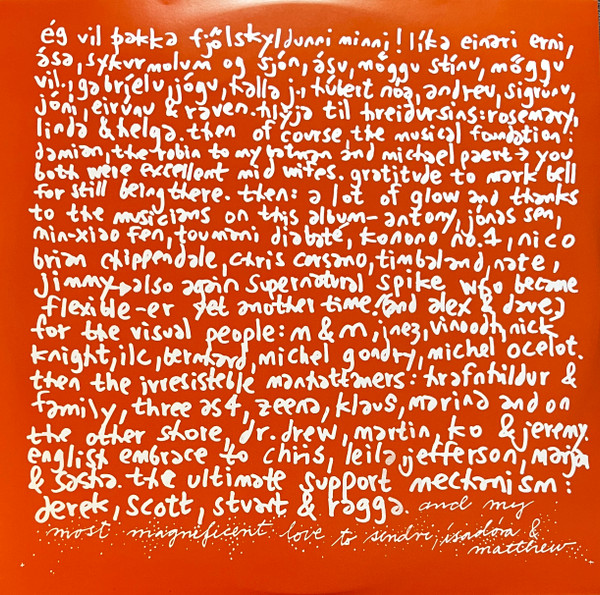 ég vil þakka fjölskyldunni minni! líka einari erni,
ása, sykurmolum og sjón, ásu, möggu stínu, möggu
vil., gabríelu, jógu, kalla j., húbert nóa, andreu, sigrúnu,
jóni, eirúnu & raven. hlýja til hreiðursins: rosemary,
linda & helga. then of course the musical foundation:
damian, the robin to my batman and michael paert → you
both were excellent mid wifes. gratitude to mark bell
for still being there. then: a lot of glow and thanks
to the musicians on this album - antony, jónas sen,
min-xiao fen, toumani diabaté, konono no.1, nico
brian chippendale, chris corsano, timbaland, nate,
jimmy, also again supernatural spike who became
flexible-er yet another time. (and alex & dave)
for the visual people: m & m, inez, vinoodh, nick
knight, ilc, bernhard, michel gondry, michel ocelot.
then the irresisteble manhattaners: hrafnhildur &
family, three as4, zeena, klaus, marina and on
the other shore, dr. drew, martin, ko & jeremy
english embrace to chris, leila, jefferson, marjan
& sasha. the ultimate support mechanism:
derek, scott, stuart & ragga. and my
most magneficent love to sindri, ísadóra &
matthew